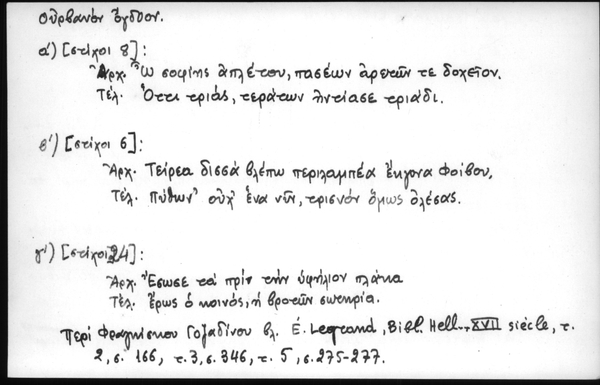 Οὐρβανὸν ὄγδοον.
α') [στίχοι 8]:
Ἀρχ. Ὦ σοφίης ἀπλέτου, πασέων ἀρετῶν τε δοχεῖον.
Τέλ. Ὅττι τριάς, τεράτων ἠντίασε τριάδι.
β') [στίχοι 6]:
Ἀρχ. Τείρεα δισσὰ βλέπω περιλαμπέα ἔκγονα Φοίβου,
Τέλ. Πύθων' οὐχ' ἕνα νῦν, τρισνὸν ὅμως ὀλέσας.
γ') [στίχοι 24]:
Ἀρχ. Ἔσωσε τὰ πρὶν τὴν ὑφήλιον πλάκα
Τέλ. ἔρως ὁ κοινός, ἡ βροτῶν σωτηρία.
Περὶ Φραγκίσκου Γοζαδίνου βλ. É. Legrand, Bibl. Hell., XVII siècle, τ.
2, σ. 166, τ. 3, σ. 346, τ. 5, σ. 275-277.